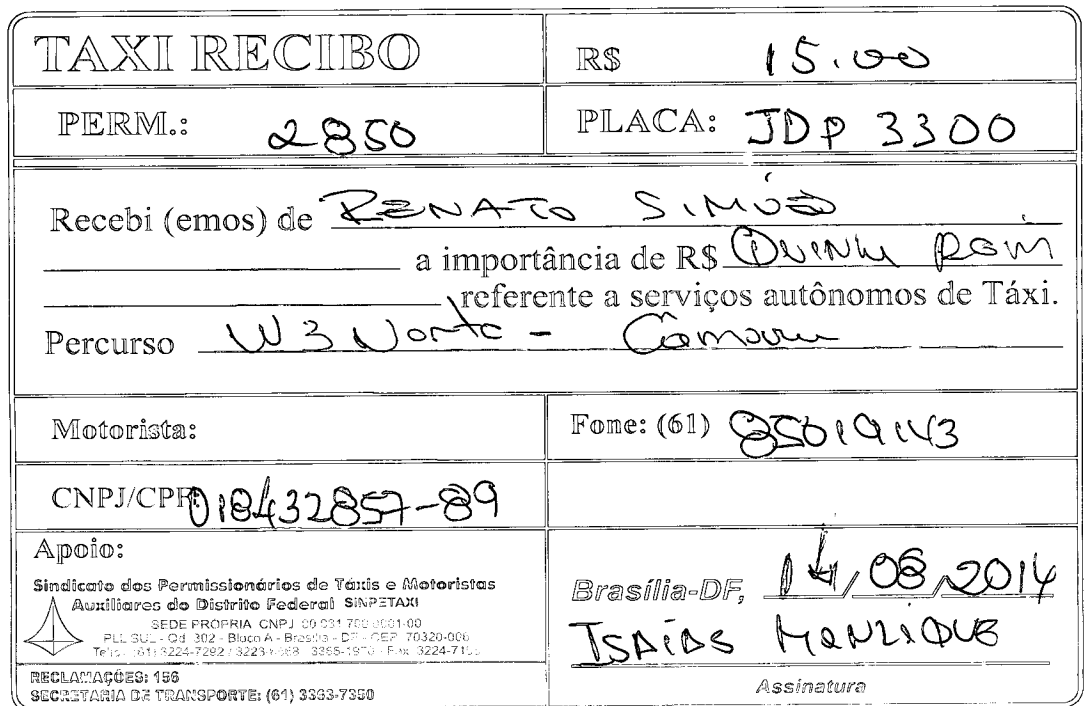 TAXI RECIBO
R$ 15.00
PERM.: 2850
PLACA: JDP 3300
Recebi (emos) de RENATO SIMÕES
a importância de R$
referente a serviços autônomos de Táxi.
Percurso W3 Norte -
Motorista:
Fone: (61) 85019143
CNPJ/CPF: 018432857-89
Apoio:
Sindicato dos Permissionários de Táxis e Motoristas
Auxiliares do Distrito Federal SINPETAXI
SEDE PROPRIA CNPJ
302 - Bloco A - Brasília - DF - CEP 70320-
(61) 3224-7292
RECLAMAÇÕES: 156
SECRETARIA DE TRANSPORTE: (61) 3363-7350
Brasília-DF, 14/08/2014
ISAÍAS MANRIQUE
Assinatura